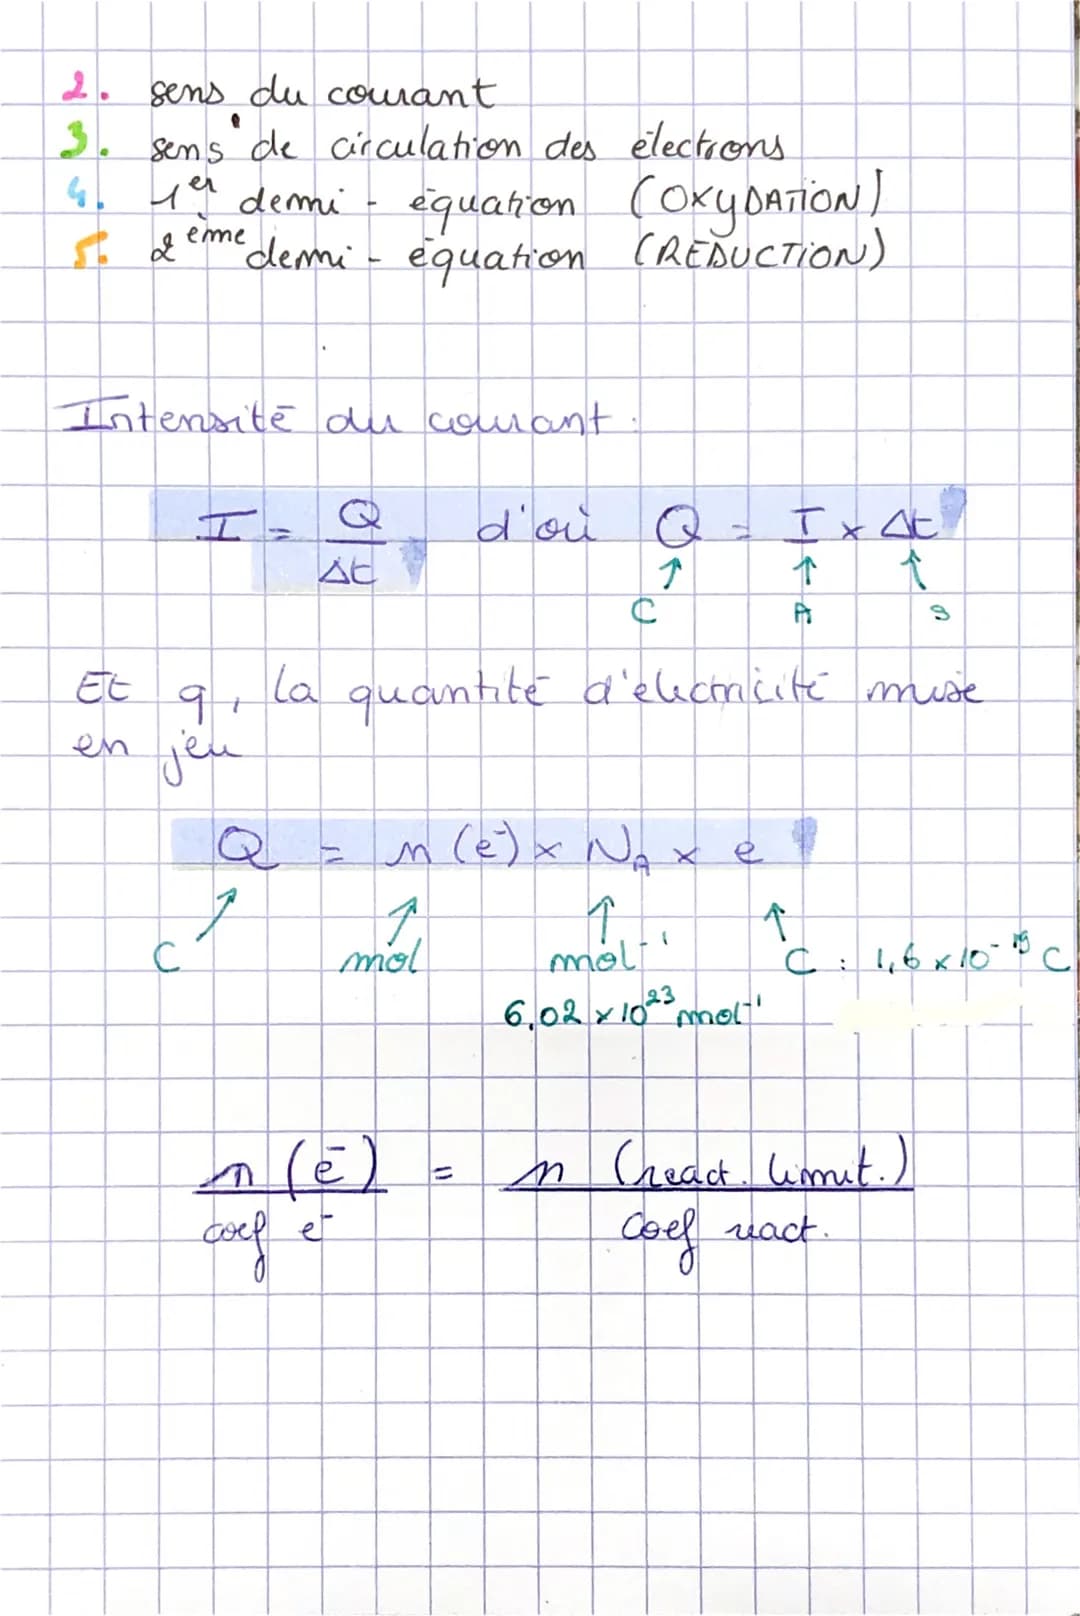 2. sens du courant
3. sens de circulation des électrons
4. 1er demi-équation (OXYDATION)
5. 2ème demi-équation (RÉDUCTION)
Intensité du courant :
I = Q/Δt d'où Q = I × Δt
↑ ↑ ↑
C A s
Et q, la quantité d'électricité mise
en jeu
Q = n (e⁻) × N_A × e
↑ ↑ ↑ ↑
C mol mol⁻¹ C : 1,6 × 10⁻¹⁹ C
6,02 × 10²³ mol⁻¹
n (e⁻) = n (réact. limit.)
coef e⁻ coef réact.